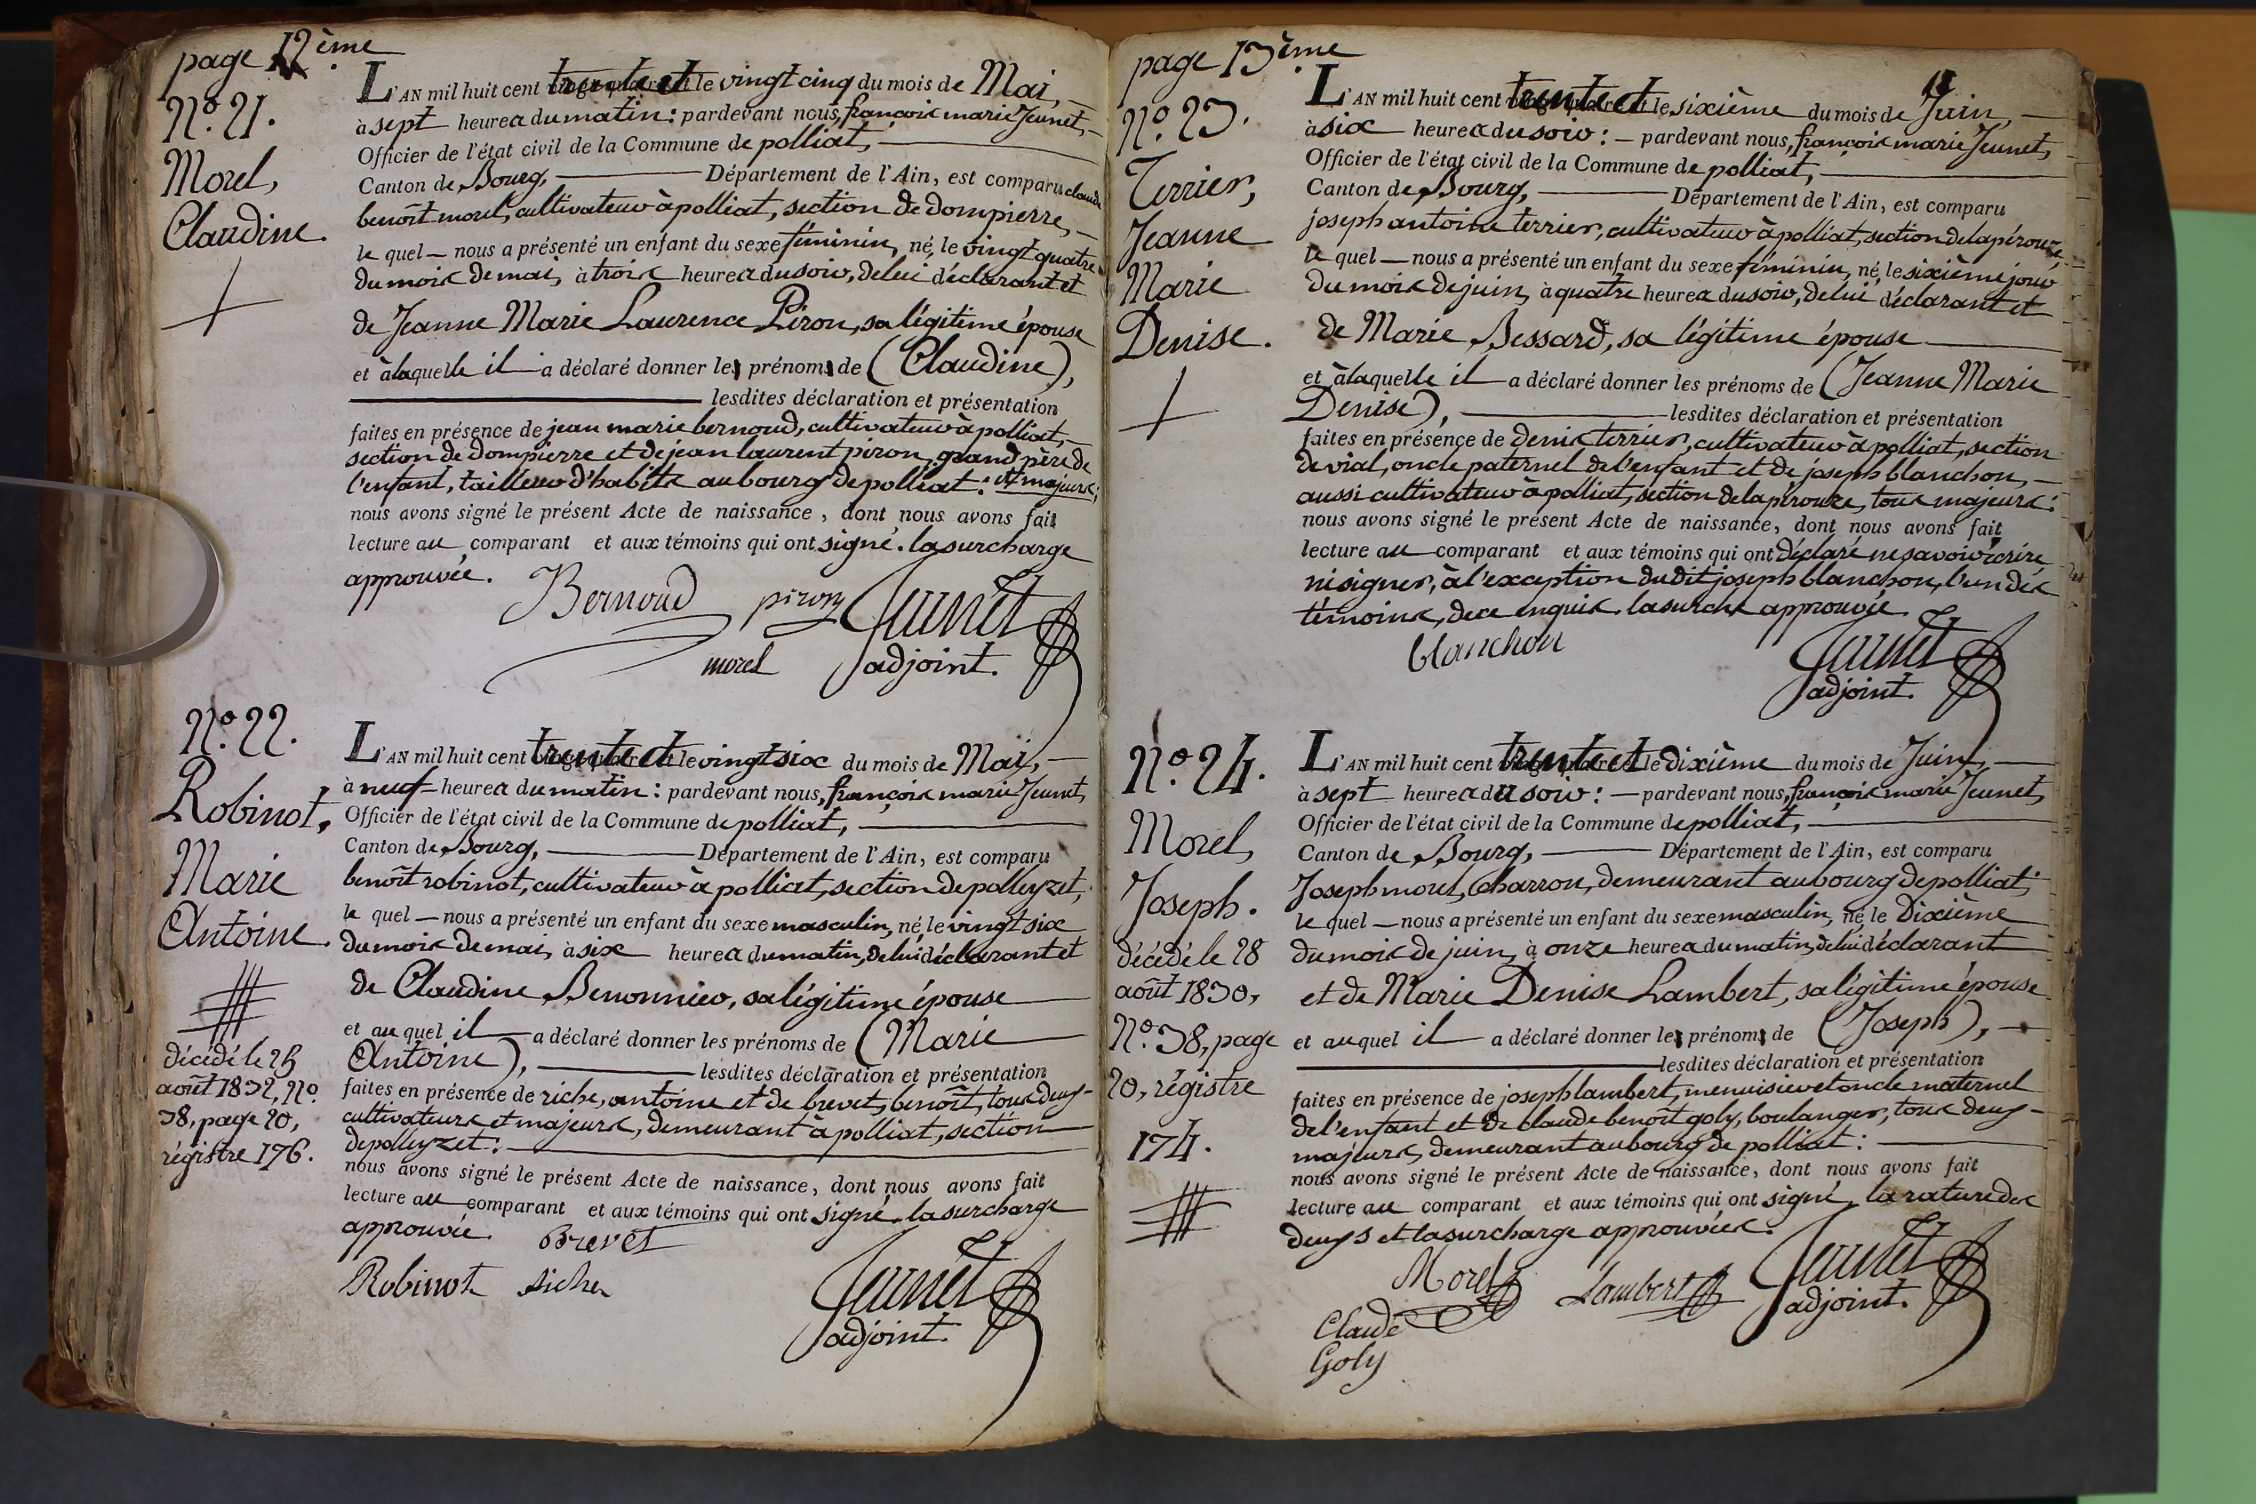 page 12ème
N.º 21.
Morel,
Claudine.
L'AN mil huit cent trente et le vingt cinq du mois de Mai,
à sept heures du matin : pardevant nous, françois marie Jeunet,
Officier de l'état civil de la Commune de polliat,
Canton de Bourg, Département de l'Ain, est comparu claude
benoît morel, cultivateur à polliat, section de dompierre,
le quel nous a présenté un enfant du sexe féminin, né, le vingt quatre
du mois de mai, à trois heures du soir, de lui déclarant et
de Jeanne Marie Laurence Piron, sa légitime épouse
et à laquelle il a déclaré donner les prénoms de (Claudine),
lesdites déclaration et présentation
faites en présence de jean marie bernoud, cultivateur à polliat,
section de dompierre et de jean laurent piron, grand père de
l'enfant, tailleur d'habits au bourg de polliat : et majeurs ;
nous avons signé le présent Acte de naissance, dont nous avons fait
lecture au comparant et aux témoins qui ont signé. la surcharge
approuvée.
Bernoud piron Jeunet
morel adjoint.
N.º 22.
Robinot,
Marie
Antoine.
décédé le 25
août 1832, N.º
38, page 20,
régistre 176.
L'AN mil huit cent trente et le vingt six du mois de Mai,
à neuf heures du matin : pardevant nous, françois marie Jeunet,
Officier de l'état civil de la Commune de polliat,
Canton de Bourg, Département de l'Ain, est comparu
benoît robinot, cultivateur à polliat, section de polleyzet,
le quel nous a présenté un enfant du sexe masculin, né, le vingt six
du mois de mai, à six heures du matin, de lui déclarant et
de Claudine Benonnier, sa légitime épouse
et au quel il a déclaré donner les prénoms de (Marie
Antoine), lesdites déclaration et présentation
faites en présence de riche, antoine et de brevet, benoît, tous deux
cultivateurs et majeurs, demeurant à polliat, section
de polleyzet :
nous avons signé le présent Acte de naissance, dont nous avons fait
lecture au comparant et aux témoins qui ont signé. la surcharge
approuvée. Brevet
Robinot riche Jeunet
adjoint.
page 13ème
N.º 23.
Terrier,
Jeanne
Marie
Denise.
L'AN mil huit cent trente et le sixième du mois de Juin,
à six heures du soir : pardevant nous, françois marie Jeunet,
Officier de l'état civil de la Commune de polliat,
Canton de Bourg, Département de l'Ain, est comparu
joseph antoine terrier, cultivateur à polliat, section de la pérouze,
le quel nous a présenté un enfant du sexe féminin, né, le sixième jour
du mois de juin, à quatre heures du soir, de lui déclarant et
de Marie Bessard, sa légitime épouse
et à laquelle il a déclaré donner les prénoms de (Jeanne Marie
Denise), lesdites déclaration et présentation
faites en présence de denis terrier, cultivateur à polliat, section
de vial, oncle paternel de l'enfant et de joseph blanchon,
aussi cultivateur à polliat, section de la pérouze, tous majeurs :
nous avons signé le présent Acte de naissance, dont nous avons fait
lecture au comparant et aux témoins qui ont déclaré ne savoir écrire
ni signer, à l'exception du dit joseph blanchon, l'un des
témoins, de ce enquis. la surche approuvée.
blanchon Jeunet
adjoint.
N.º 24.
Morel,
Joseph.
décédé le 28
août 1830,
N.º 38, page
20, régistre
174.
L'AN mil huit cent trente et le dixième du mois de Juin,
à sept heures du soir : pardevant nous, françois marie Jeunet,
Officier de l'état civil de la Commune de polliat,
Canton de Bourg, Département de l'Ain, est comparu
Joseph morel, Charron, demeurant au bourg de polliat,
le quel nous a présenté un enfant du sexe masculin, né, le Dixième
du mois de juin, à onze heures du matin, de lui déclarant
et de Marie Denise Lambert, sa légitime épouse
et au quel il a déclaré donner les prénoms de (Joseph),
lesdites déclaration et présentation
faites en présence de joseph lambert, menuisier et oncle maternel
de l'enfant et de claude benoît goly, boulanger, tous deux
majeurs, demeurant au bourg de polliat :
nous avons signé le présent Acte de naissance, dont nous avons fait
lecture au comparant et aux témoins qui ont signé, la rature des
deux s et la surcharge approuvées.
Morel Lambert Jeunet
Claude adjoint.
Goly